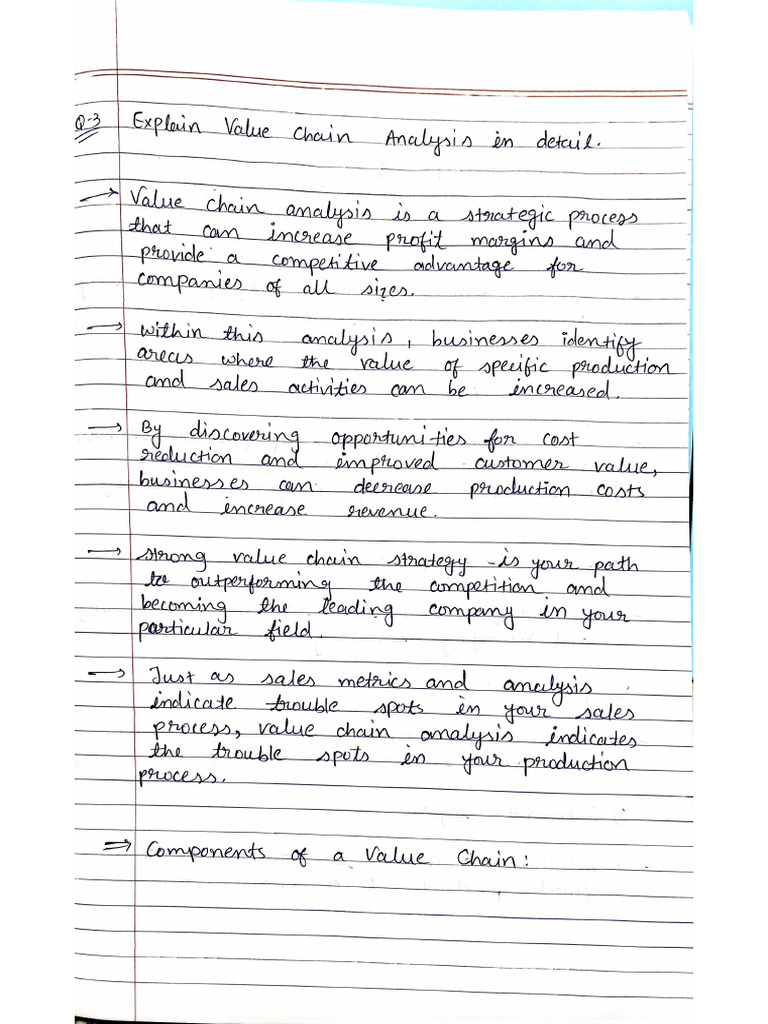 Q-3 Explain Value Chain Analysis in detail.
→ Value chain analysis is a strategic process
that can increase profit margins and
provide a competitive advantage for
companies of all sizes.
→ within this analysis, businesses identify
areas where the value of specific production
and sales activities can be increased.
→ By discovering opportunities for cost
reduction and improved customer value,
businesses can decrease production costs
and increase revenue.
→ strong value chain strategy is your path
to outperforming the competition and
becoming the leading company in your
particular field.
→ Just as sales metrics and analysis
indicate trouble spots in your sales
process, value chain analysis indicates
the trouble spots in your production
process.
⇒ Components of a Value Chain: